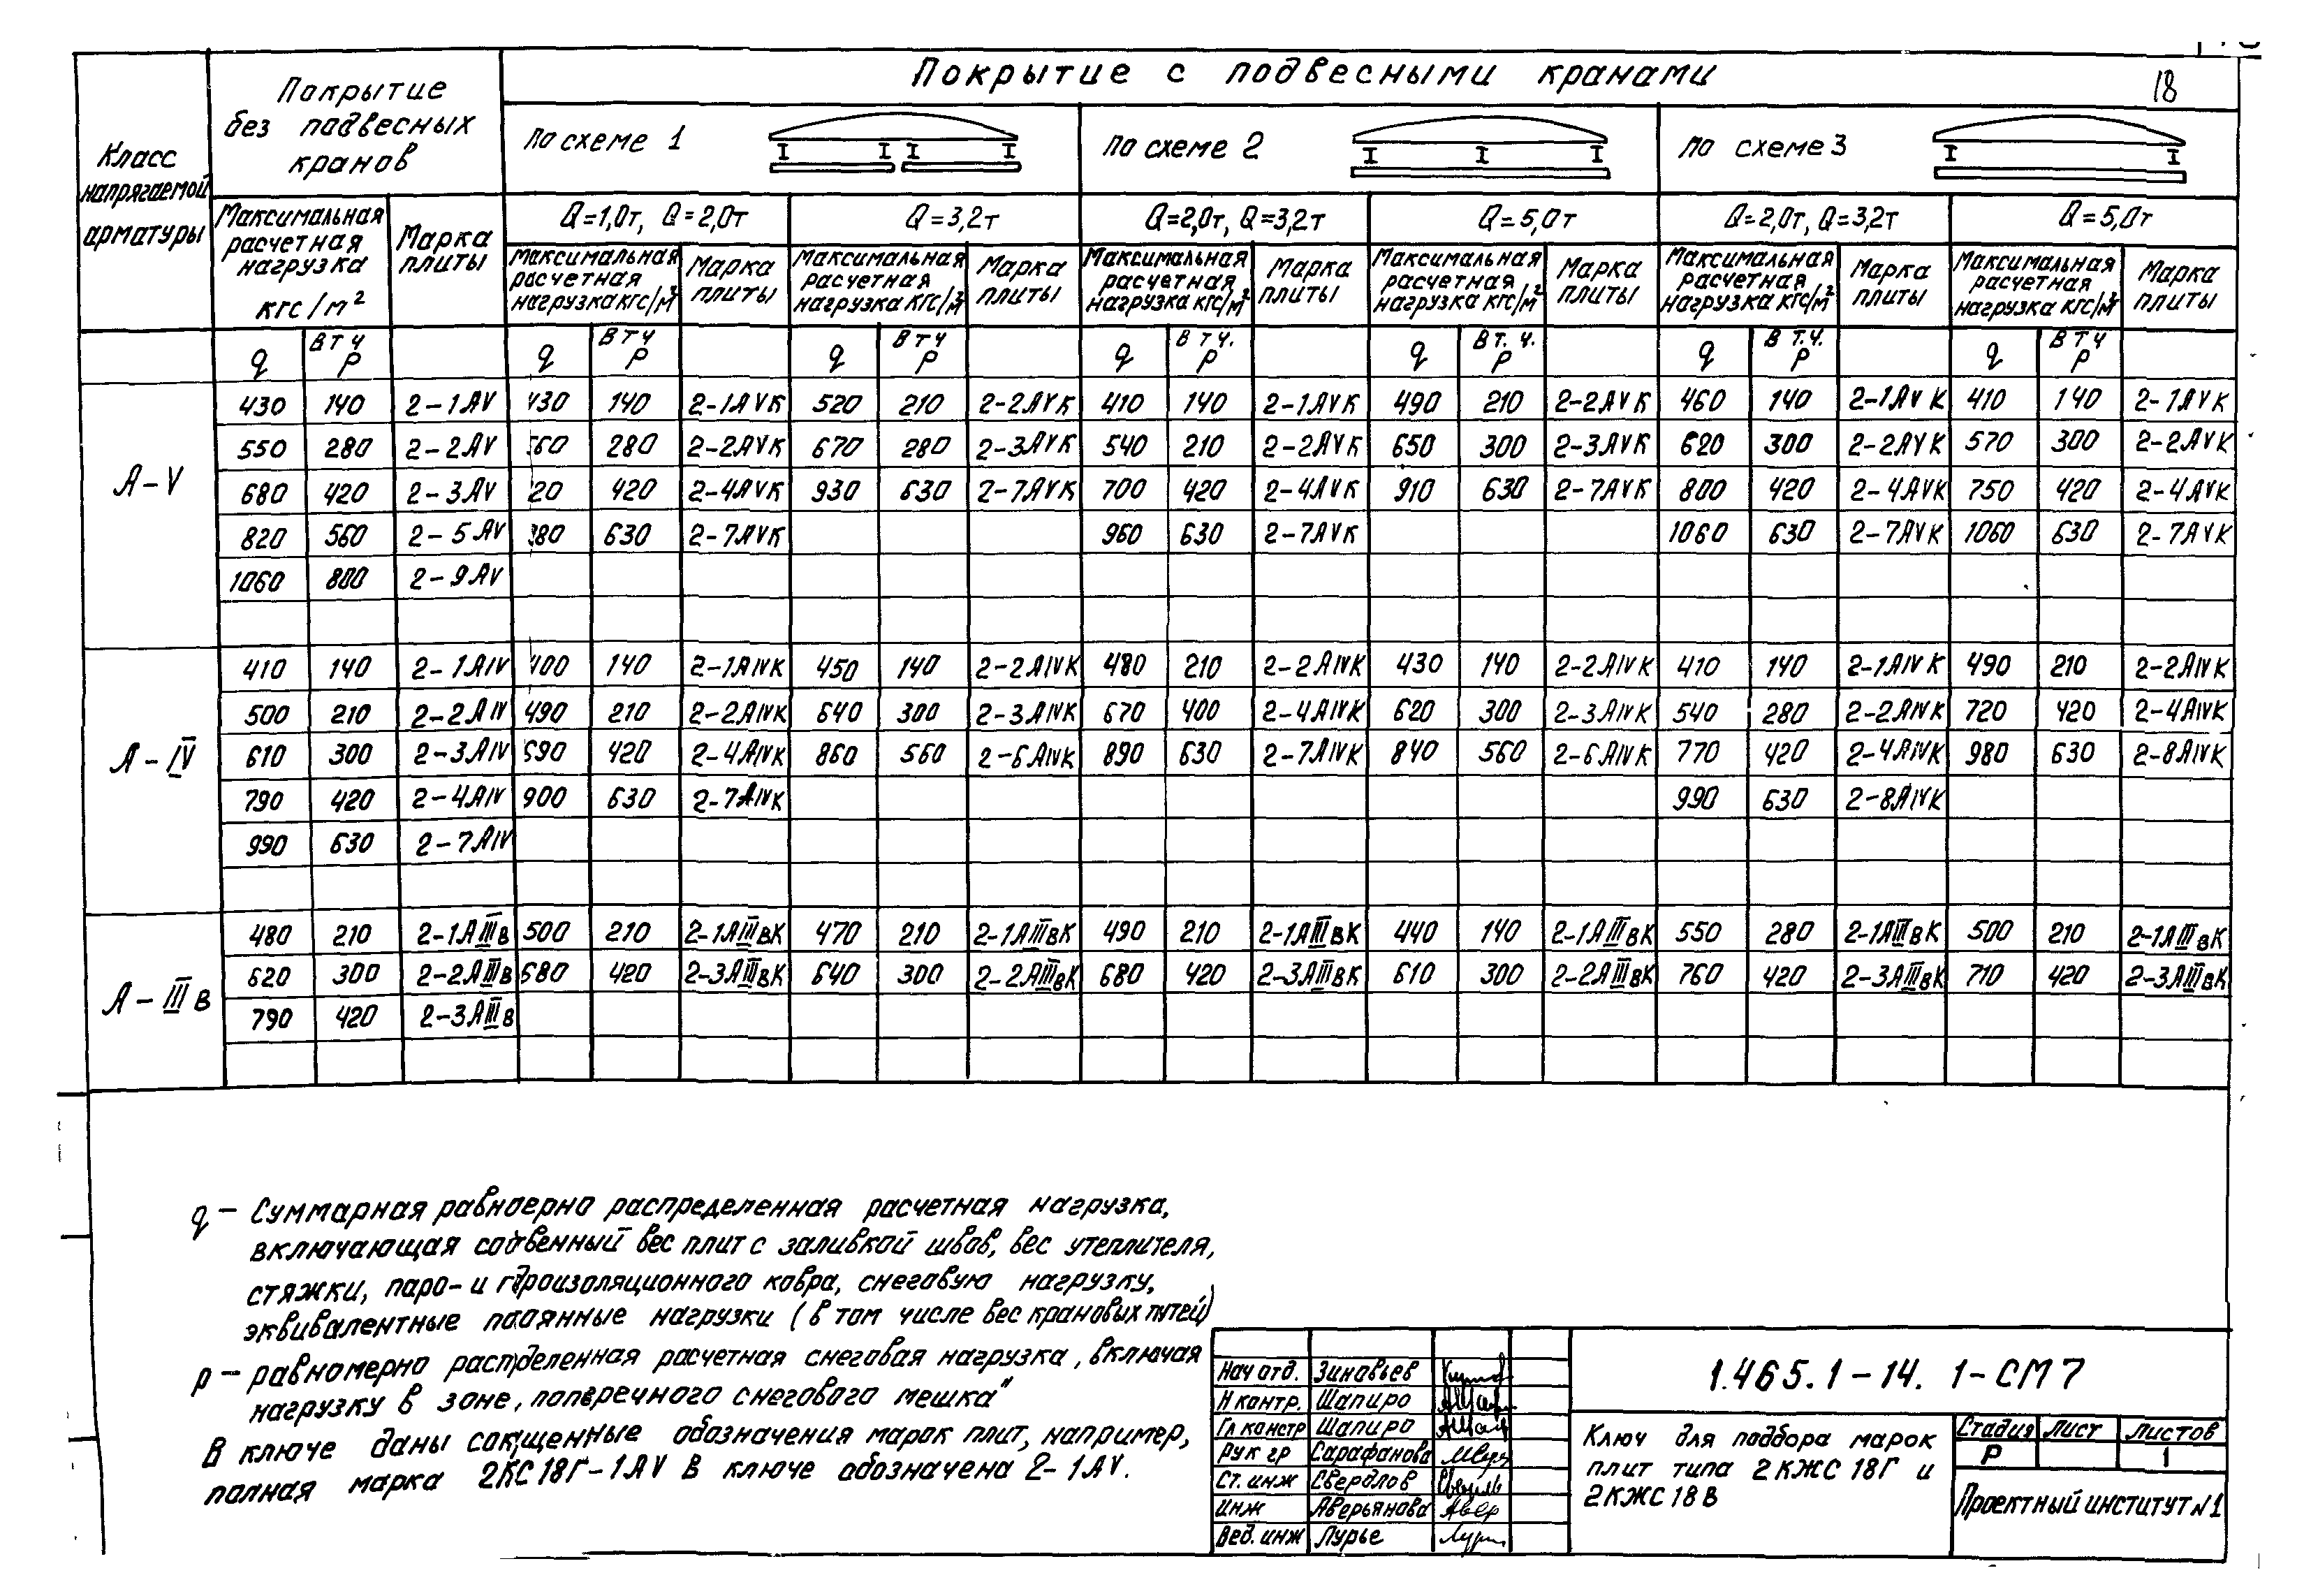 18
Покрытие с подвесными кранами
Покрытие
без подвесных
кранов
Класс
напрягаемой
арматуры
по схеме 1
по схеме 2
по схеме 3
Максимальная
расчетная
нагрузка
кгс/м²
Марка
плиты
Q=1,0т, Q=2,0т
Q=3,2т
Q=2,0т, Q=3,2т
Q=5,0т
Q=2,0т, Q=3,2т
Q=5,0т
Максимальная
расчетная
нагрузка кгс/м²
Марка
плиты
Максимальная
расчетная
нагрузка кгс/м²
Марка
плиты
Максимальная
расчетная
нагрузка кгс/м²
Марка
плиты
Максимальная
расчетная
нагрузка кгс/м²
Марка
плиты
Максимальная
расчетная
нагрузка кгс/м²
Марка
плиты
Максимальная
расчетная
нагрузка кгс/м²
Марка
плиты
q в т ч р q в т ч р q в т ч р q в т ч. р q в т. ч. р q в т.ч. р q в т ч р
А-V
430 140 2-1АV 430 140 2-1АVК 520 210 2-2АVК 410 140 2-1АVК 490 210 2-2АVК 460 140 2-1АVК 410 140 2-1АVК
550 280 2-2АV 560 280 2-2АVК 670 280 2-3АVК 540 210 2-2АVК 650 300 2-3АVК 620 300 2-2АVК 570 300 2-2АVК
680 420 2-3АV 20 420 2-4АVК 930 630 2-7АVК 700 420 2-4АVК 910 630 2-7АVК 800 420 2-4АVК 750 420 2-4АVК
820 560 2-5АV 80 630 2-7АVК 960 630 2-7АVК 1060 630 2-7АVК 1060 630 2-7АVК
1060 800 2-9АV
А-IV
410 140 2-1АIV 400 140 2-1АIVК 450 140 2-2АIVК 480 210 2-2АIVК 430 140 2-2АIVК 410 140 2-1АIVК 490 210 2-2АIVК
500 210 2-2АIV 490 210 2-2АIVК 640 300 2-3АIVК 670 400 2-4АIVК 620 300 2-3АIVК 540 280 2-2АIVК 720 420 2-4АIVК
610 300 2-3АIV 690 420 2-4АIVК 860 560 2-6АIVК 890 630 2-7АIVК 840 560 2-6АIVК 770 420 2-4АIVК 980 630 2-8АIVК
790 420 2-4АIV 900 630 2-7АIVК 990 630 2-8АIVК
990 630 2-7АIV
А-IIIв
480 210 2-1АIIIв 500 210 2-1АIIIвК 470 210 2-1АIIIвК 490 210 2-1АIIIвК 440 140 2-1АIIIвК 550 280 2-1АIIIвК 500 210 2-1АIIIвК
620 300 2-2АIIIв 680 420 2-3АIIIвК 640 300 2-2АIIIвК 680 420 2-3АIIIвК 610 300 2-2АIIIвК 760 420 2-3АIIIвК 710 420 2-3АIIIвК
790 420 2-3АIIIв
q – Суммарная равноерно распределенная расчетная нагрузка,
включающая содвенный вес плит с заливкой швов, вес утеплителя,
стяжки, паро- и гдроизоляционного ковра, снеговую нагрузку,
эквивалентные посянные нагрузки (в том числе вес крановых путей)
р – равномерно распделенная расчетная снеговая нагрузка, включая
нагрузку в зоне, поперечного снегового мешка"
В ключе даны сокщенные обозначения марок плит, например,
полная марка 2КС18Г-1АV в ключе обозначена 2-1АV.
Нач отд. Зиновьев
Н контр. Шапиро
Гл констр Шапиро
Рук гр Сарафанова
Ст. инж Свердлов
Инж Аверьянова
Вед. инж Лурье
1.465.1-14. 1-СМ7
Ключ для подбора марок
плит типа 2КЖС18Г и
2КЖС18В
Стадия Лист Листов
Р 1
Проектный институт N1